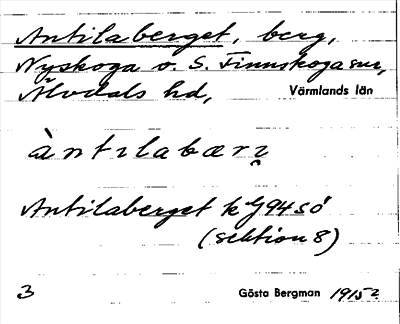 Antilaberget, berg,
Nyskoga o. S. Finnskoga snr,
Älvdals hd, Värmlands län
àntılabærı̥
Antilaberget k G94SÖ
(sektion 8)
3 Gösta Bergman 1915?